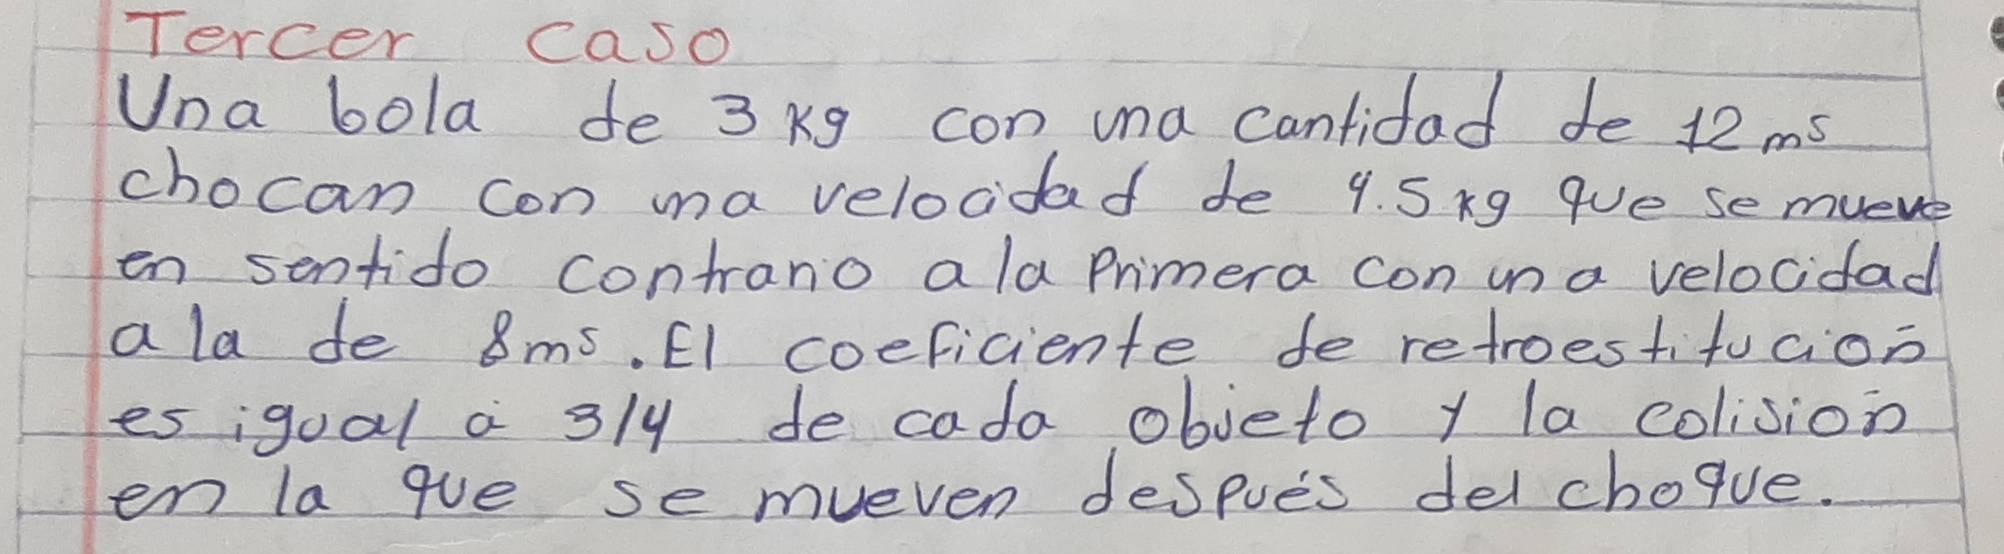 Tercer caso
Una bola de 3 kg con una cantidad de 12 ms
chocan con una velocidad de 4.5 kg que se mueve
en sentido contrario a la primera con una velocidad
a la de 8 ms. El coeficiente de retroestitución
es igual a 3/4 de cada objeto y la colisión
en la que se mueven después del choque.